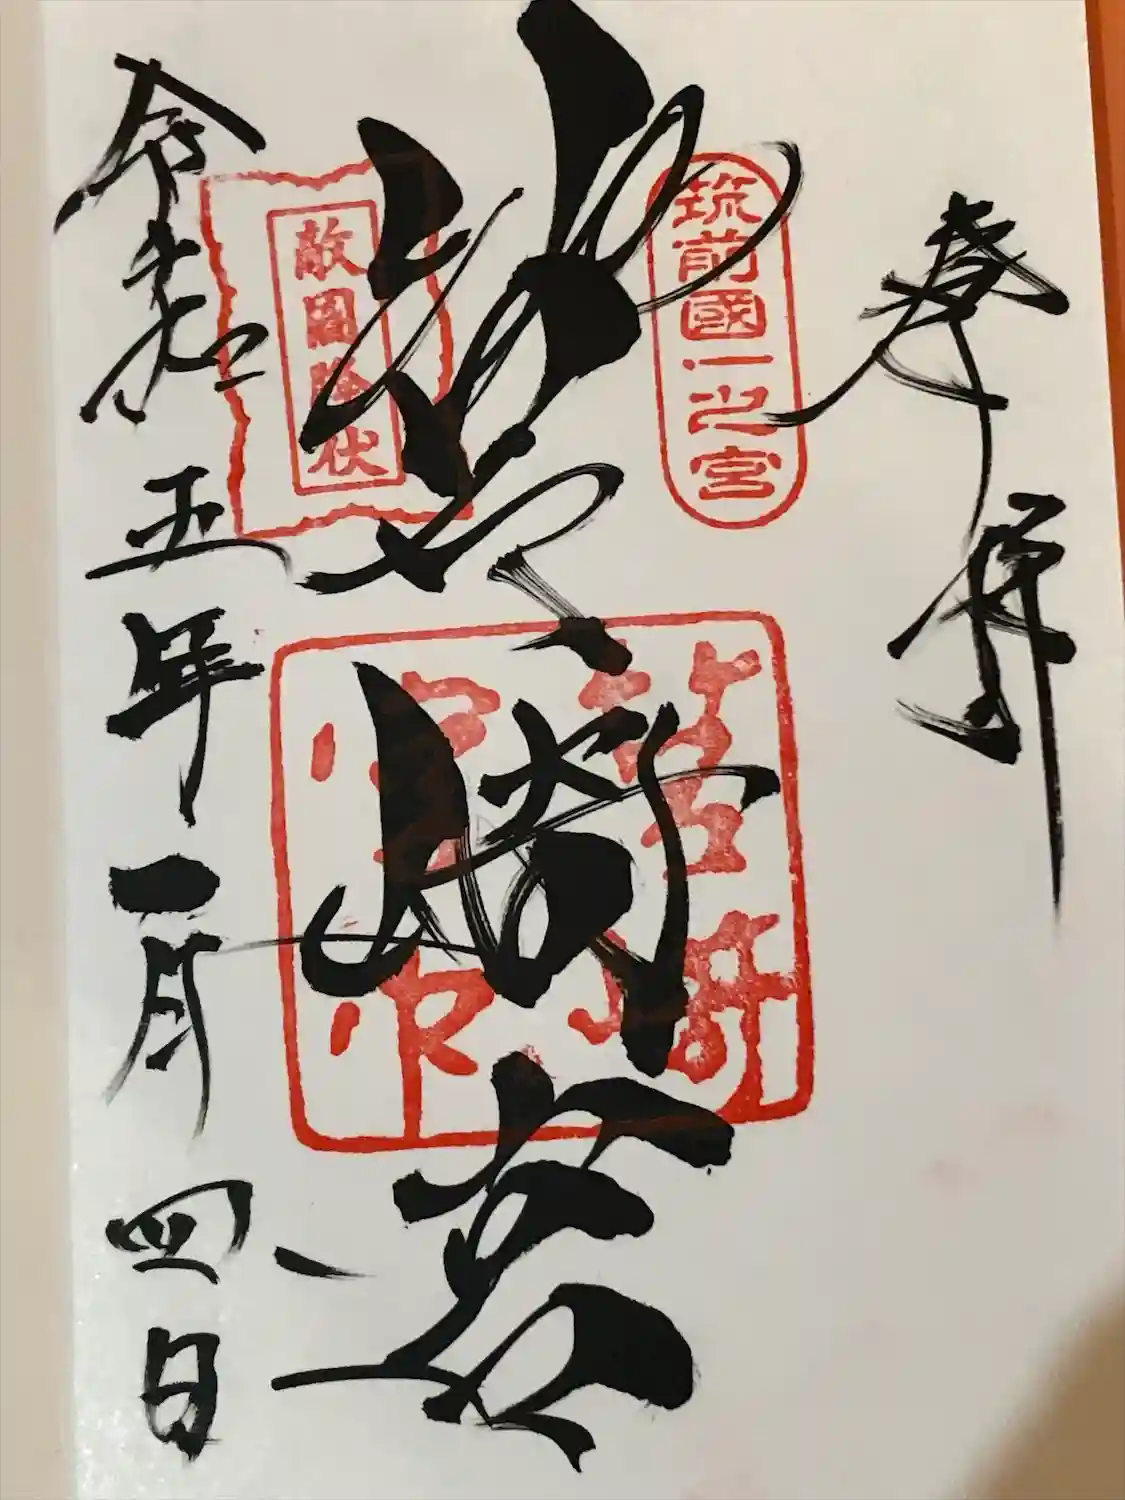 奉拝
筑前國一之宮
敵國降伏
筥崎宮
筥崎宮印
令和五年一月四日